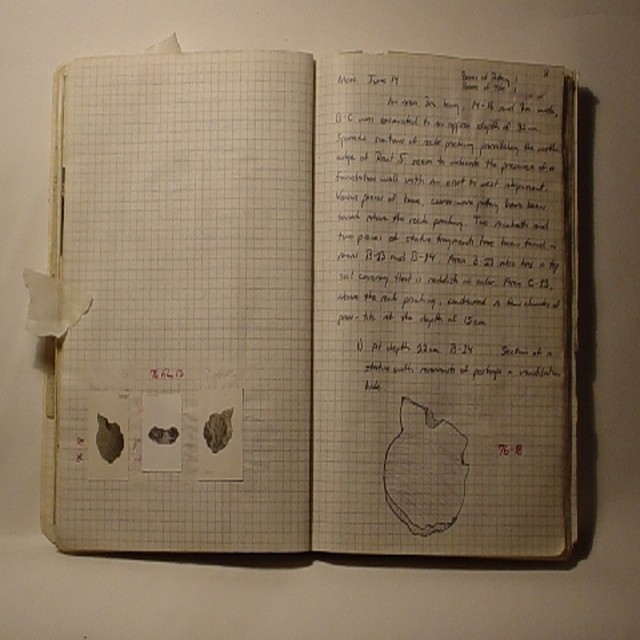 76-8
Mon. June 14
8
Boxes of Pottery 1
Boxes of Tile 1
In area 2m. long, 14-16 and 2m. wide,
B-C was excavated to an approx depth of 32 cm.
Sporadic sections of rock packing paralleling the
edge of 5 seem to indicate the presence of a
foundation wall with an east to west alignment.
Various pieces of bone, coarse ware pottery have been
found above the rock packing. Two and
two pieces of statue fragments have been found in
areas B-13 and B-14. Area also has a top
soil covering that is reddish in color. Area C-13,
above the rock packing, contained a few chunks of
at the depth of 15 cm
1) At depth 22 cm B-14 Section of a
statue with remnants of perhaps a ventilation
hole
76-8